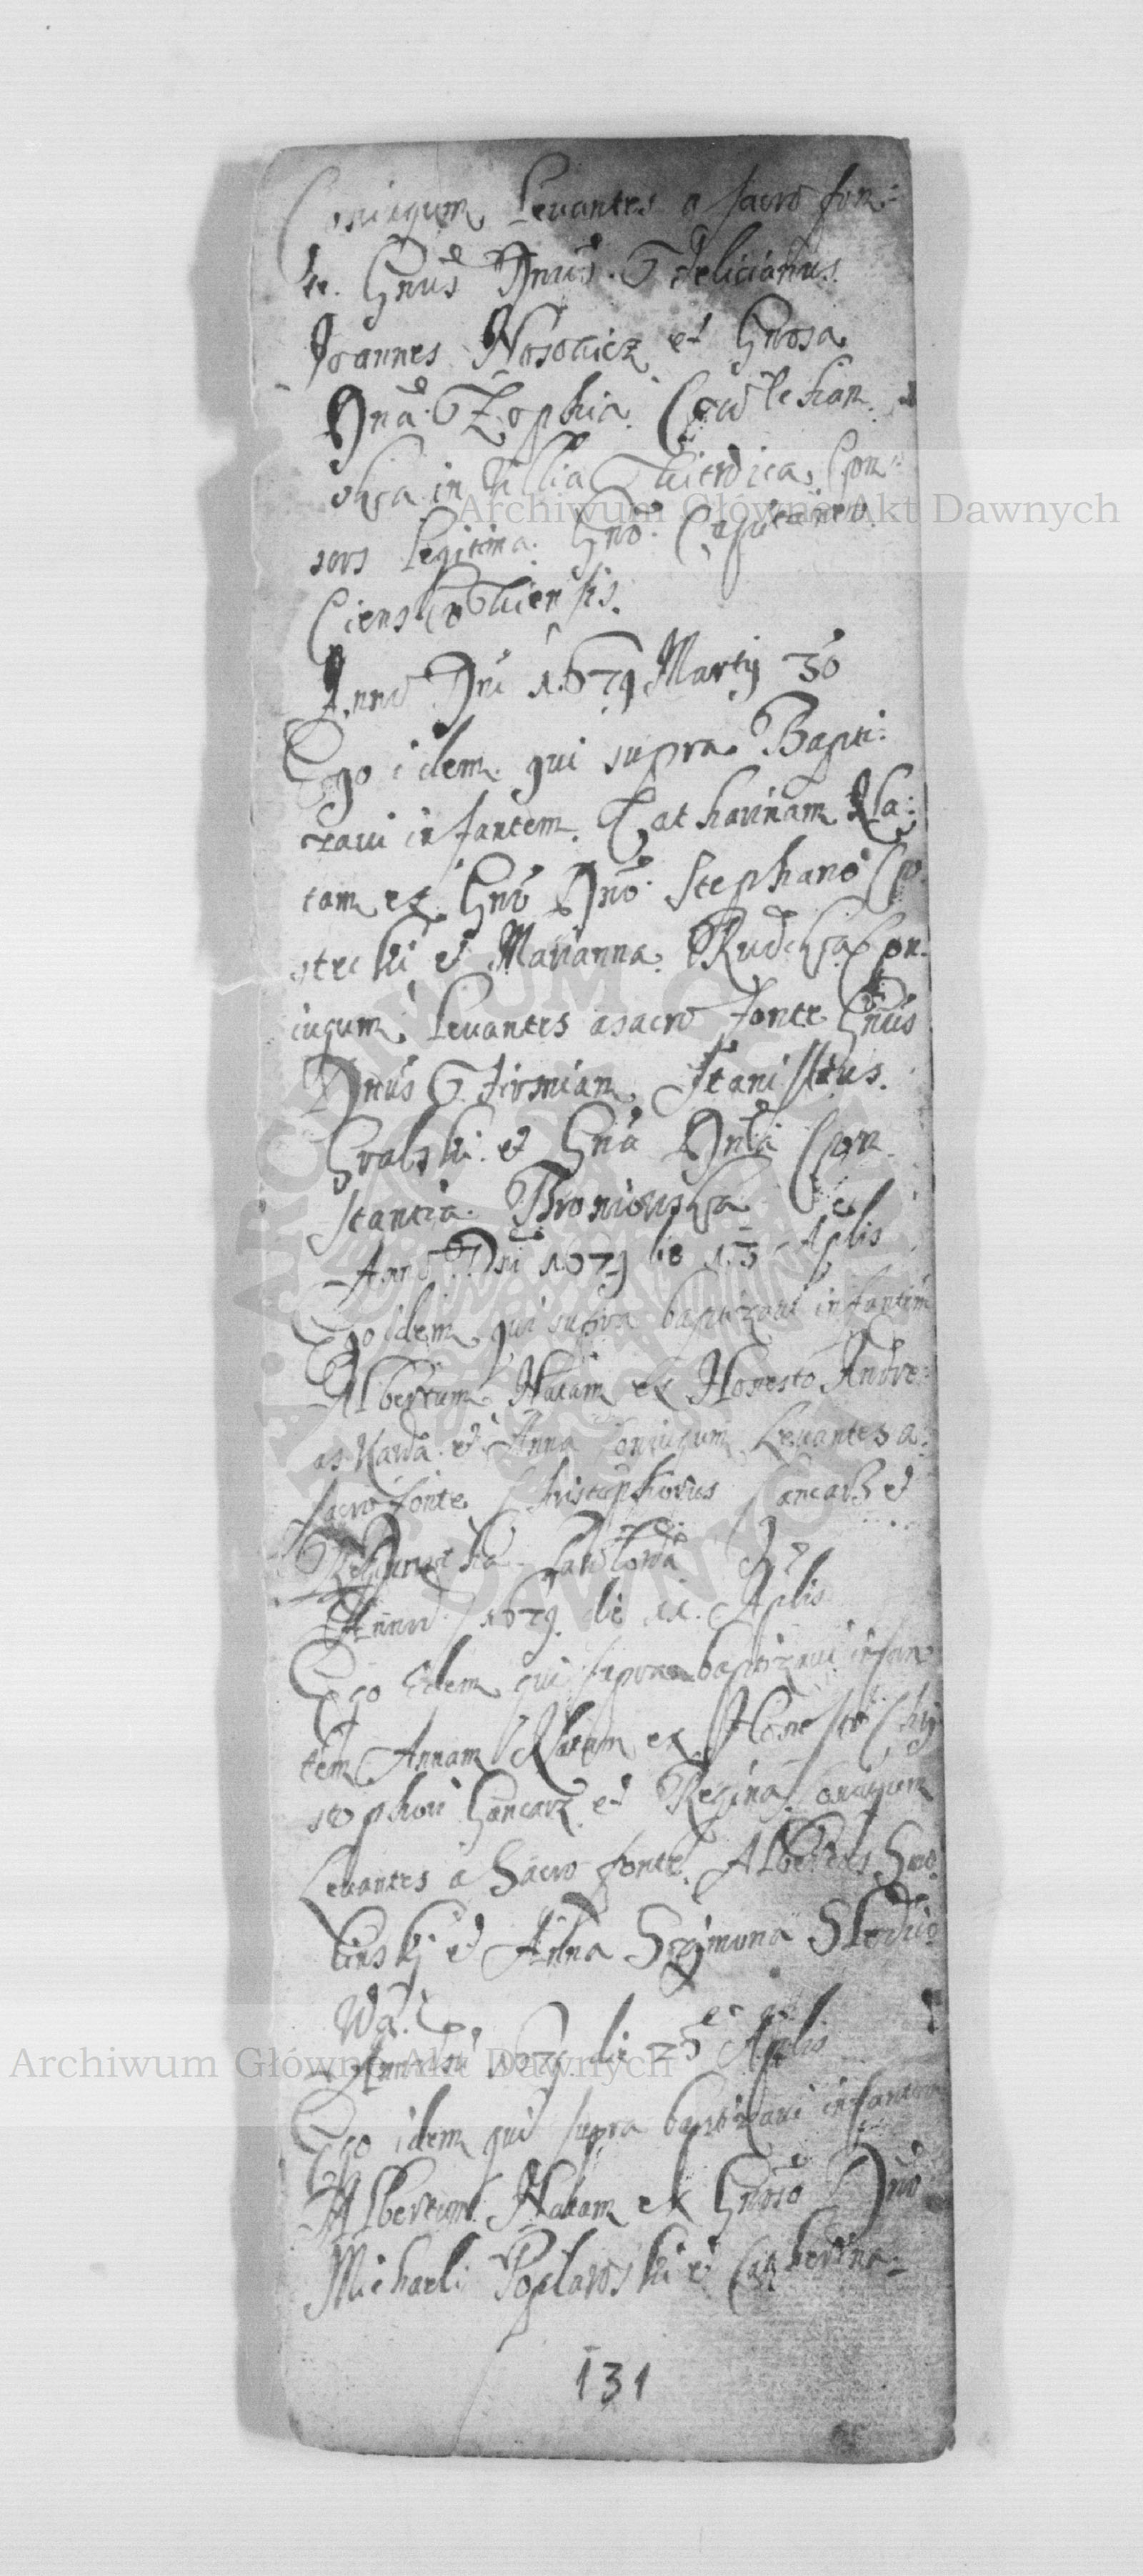 Coniugum Levantes a sacro fon=
te. Gnus Dnus Felicianus
Joannes Nosowicz et Gnosa
Dna Zophia
in Villa Con=
sors legitima. Gno. Capitaneo

Anno Dni 1679 Martij 30
Ego idem qui supra Bapti:
zavi infantem Catharinam Na:
tam ex Gno Dno Stephano Co
stecki et Marianna Rudcka Con.
iugum Levantes a sacro fonte Gnus
Dnus Firmian Stanislaus
Gralski et Gna Dna Con
stantia Broniowska
Anno Dni 1679 die 13 Aplis
Ego idem qui supra baptizavi infantem
Albertum Natam ex Honesto Andre:
as Kawa et Anna Coniugum Levantes a
sacro fonte Christophorus Gancarz et

Anno 1679 die 11 Aplis
Ego idem qui supra baptizavi infan
tem Annam Natam ex Honesto Chry
stophori Gancarz et Regina Coniugum
Levantes a Sacro fonte Albertus Smo
linskj et Anna Szymona Sledzio
wa.
Anno Dni 1679 die 25 Aplis
Ego idem qui supra baptizavi infantem
Albertum Natam ex Gnoso Dno
Michaeli Poplawski et Catherina
131
Archiwum Główne Akt Dawnych
Archiwum Główne Akt Dawnych